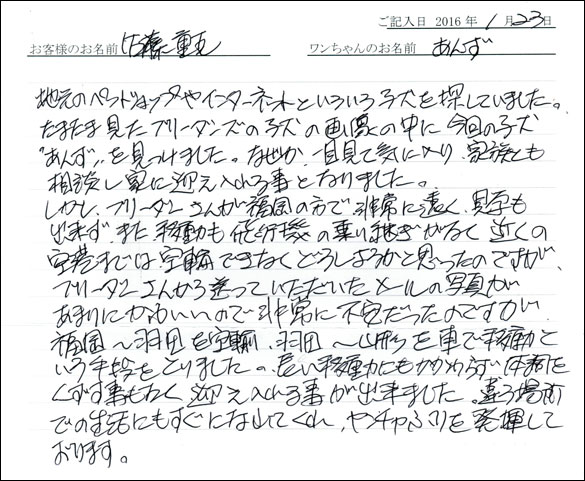 ご記入日 2016 年 1 月 23 日
お客様のお名前 佐藤 ワンちゃんのお名前 あんず
地元のペットショップやインターネットといろいろ子犬を探していました。
たまたま見たブリーダンズの子犬の画像の中に今回の子犬
"あんず"を見つけました。なぜか、一目見て気に入り、家族とも
相談し家に迎え入れる事となりました。
しかし、ブリーダーさんが福岡の方で非常に遠く、見学も
出来ず、また移動も飛行機の乗り継ぎがなく近くの
空港までは空輸できなくどうしようかと思ったのですが、
ブリーダーさんから送っていただいたメールの写真が
あまりにかわいいので非常に不安だったのですが、
福岡〜羽田を空輸、羽田〜山形を車で移動と
いう手段をとりました。長い移動にもかかわらず体調を
くずす事もなく迎え入れる事が出来ました。違う場所
での生活にもすぐになれてくれ、ヤンチャぶりを発揮して
おります。